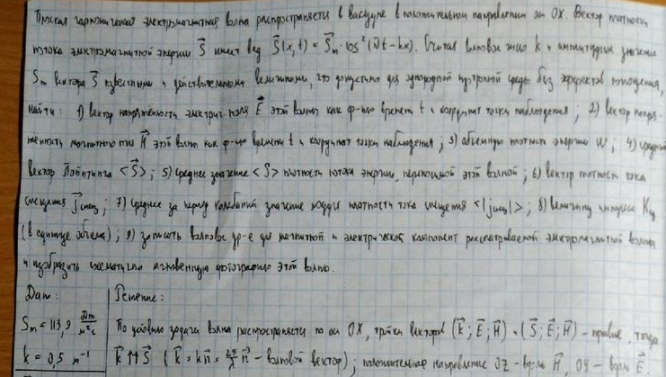 Плоская гармоническая электромагнитная волна распространяется в вакууме в положительном направлении оси OX. Вектор плотности
потока электромагнитной энергии S⃗ имеет вид S⃗(x,t) = S⃗m·cos²(ωt-kx). Считая волновое число k и амплитудное значение
Sm вектора S⃗ известными и действительными величинами, что допустимо для однородной изотропной среды без эффектов поглощения,
найти: 1) вектор напряжённости электрич. поля E⃗ этой волны как ф-цию времени t и координат точки наблюдения; 2) вектор напря-
женности магнитного поля H⃗ этой волны как ф-цию времени t и координат точки наблюдения; 3) объемную плотность энергии w; 4) средний
вектор Пойнтинга <S⃗>; 5) среднее значение <S> плотности потока энергии, переносимой этой волной; 6) вектор плотности тока
смещения j⃗смещ; 7) среднее за период колебаний значение модуля плотности тока смещения <|jсмещ|>; 8) величину импульса Kед
(в единице объема); 9) записать волновые ур-е для магнитной и электрической компонент рассматриваемой электромагнитной волны
и изобразить схематично мгновенную фотографию этой волны.
Дано: Решение:
Sm = 113,9 Дж/м²с По условию задачи волна распространяется по оси OX, тройки векторов (k⃗; E⃗; H⃗) и (S⃗; E⃗; H⃗) - правые, тогда
k = 0,5 м⁻¹ k⃗ ↑↑ S⃗ (k⃗ = kn⃗ = 2π/λ n⃗ - волновой вектор); положительное направление OZ - вдоль H⃗, OY - вдоль E⃗.